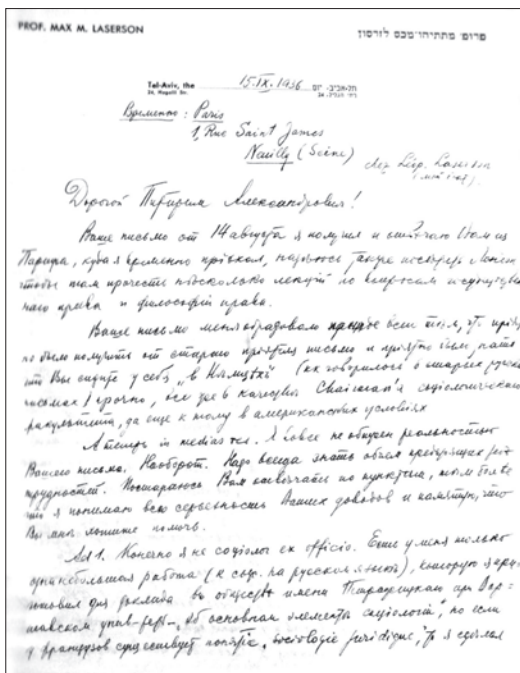 PROF. MAX M. LASERSON
פרופ׳ מתתיהו־מכס לזרסון
Tel-Aviv, the 15.IX.1936 תל־אביב, יום
Временно: Paris
1, Rue Saint James
Neuilly (Seine)
chez Léop. Laserson
Дорогой Питирим Александрович!
Ваше письмо от 14 августа я получил и отвечаю Вам из
Парижа, куда я временно приехал, надеюсь также
чтобы там прочесть несколько лекций по вопросам
права и философии права.
Ваше письмо меня обрадовало прежде всего тем, что
но было получить от старого приятеля письмо и приятно было
что Вы сидите у себя „в (как говорилось в старых русских
письмах) прочно, все ещё в качестве Chairman'а социологического
факультета, да еще к тому в американских условиях
А теперь in medias res. Я вовсе не обижен реальностью
Вашего письма. Наоборот. Надо всегда знать объем предстоящих
трудностей. Постараюсь Вам отвечать по пунктам, тем более
что я понимаю всю серьезность Ваших доводов и памятую, что
Вы мне хотите помочь.
Ad 1. Конечно я не социолог ex officio. Есть у меня только
одна небольшая работа (к сож. на русском языке), которую я
готовил для доклада в обществе имени Петражицкого при Вар-
шавском „Об основных элементах социологии", но если
у французов существует понятие „sociologie juridique", то я сделал